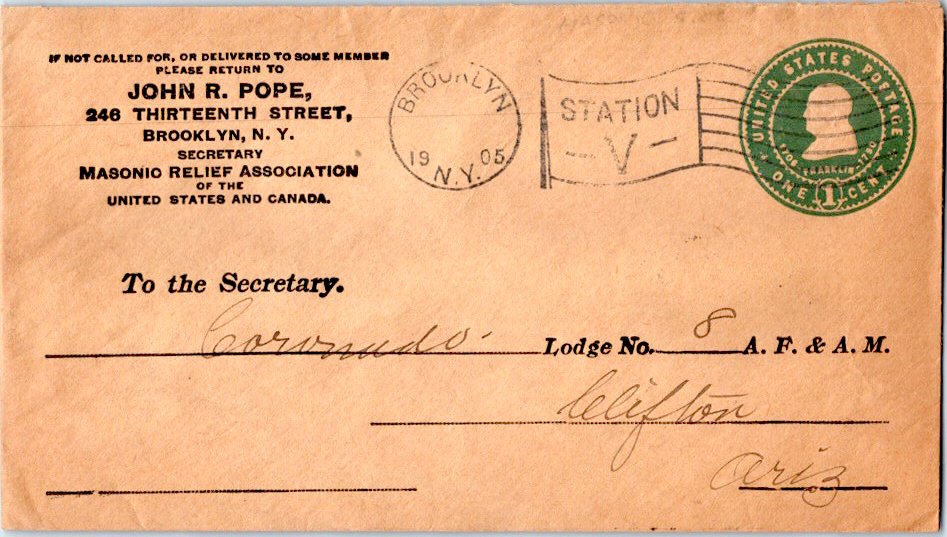 IF NOT CALLED FOR, OR DELIVERED TO SOME MEMBER
PLEASE RETURN TO
JOHN R. POPE,
246 THIRTEENTH STREET,
BROOKLYN, N. Y.
SECRETARY
MASONIC RELIEF ASSOCIATION
OF THE
UNITED STATES AND CANADA.
BROOKLYN
19 05
N.Y.
STATION
V
UNITED STATES POSTAGE
1706 FRANKLIN 1790
ONE 1 CENT
To the Secretary.
Coronado Lodge No. 8 A. F. & A. M.
Clifton
Ariz